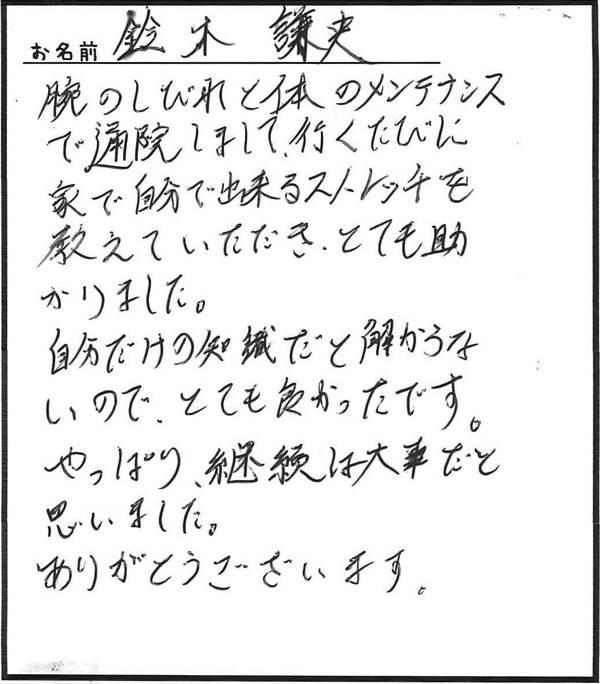 お名前 鈴木 謙史
腕のしびれと体のメンテナンス
で通院しまして、行くたびに
家で自分で出来るストレッチを
教えていただき、とても助
かりました。
自分だけの知識だと解からな
いので、とても良かったです。
やっぱり、継続は大事だと
思いました。
ありがとうございます。